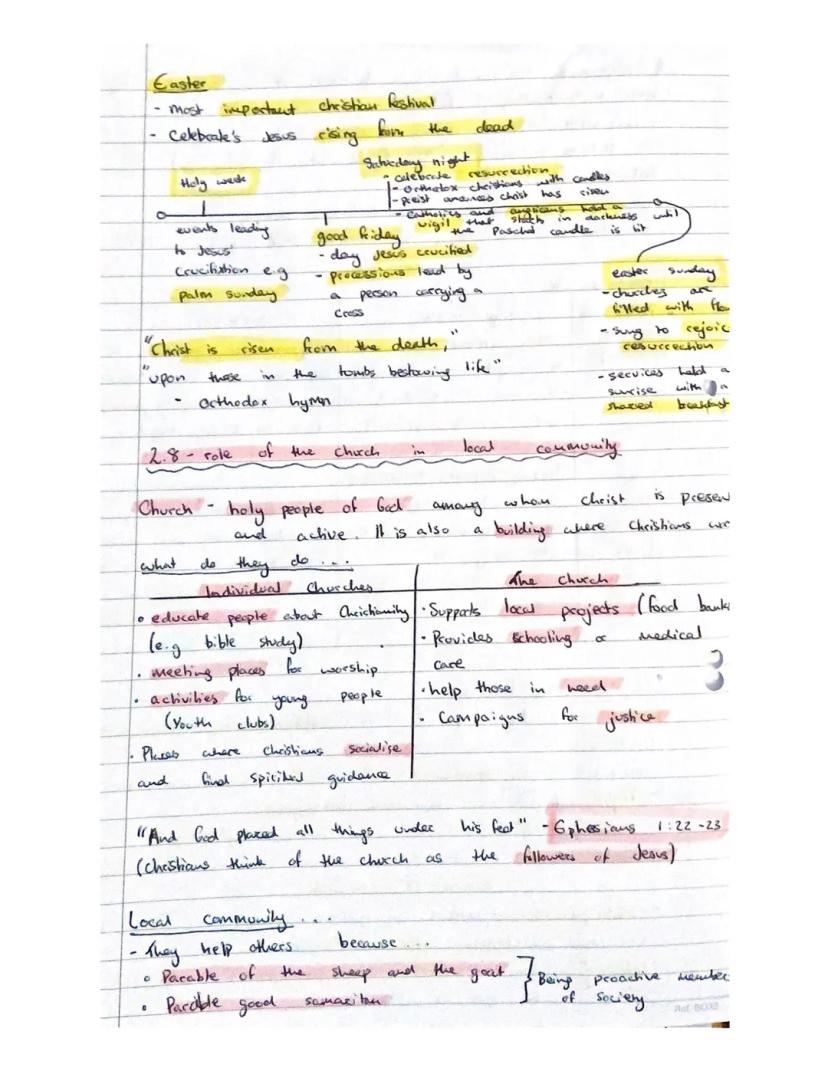 Easter
- most important christian festival
- Celebrate's Jesus rising from the dead
Saturday night
- celebrate resurrection
- Orthodox christians with candles
- preist announces christ has risen
- catholics and anglicans hold a
vigil that starts in darkness until
the Paschal candle is lit
Holy week
events leading
to Jesus'
Crucifixtion e.g
palm sunday
good friday
- day Jesus crucified
- processions lead by
a person carrying a
cross
easter sunday
- churches are
filled with flo
- sung to rejoic
resurrection
- services held a
sunrise with a
shared breakfast
"Christ is risen from the death,"
"upon those in the tombs bestowing life"
- Orthodox hymn
2.8 - role of the church in local community
Church - holy people of God among whom christ is presen
and active. It is also a building where Christians wo
what do they do ...
Individual Churches
• educate people about Christianity
(e.g bible study)
• meeting places for worship
• activities for young people
(Youth clubs)
• Places where christians socialise
and find spiritual guidance
The church
• Supports local projects (food bank
• Provides schooling or medical
care
• help those in need
• Campaigns for justice
"And God placed all things under his feet" - Ephesians 1:22-23
(christians think of the church as the followers of Jesus)
Local community ...
- They help others because ...
• Parable of the sheep and the goat
• Parable good samaritan
Being proactive member
of society